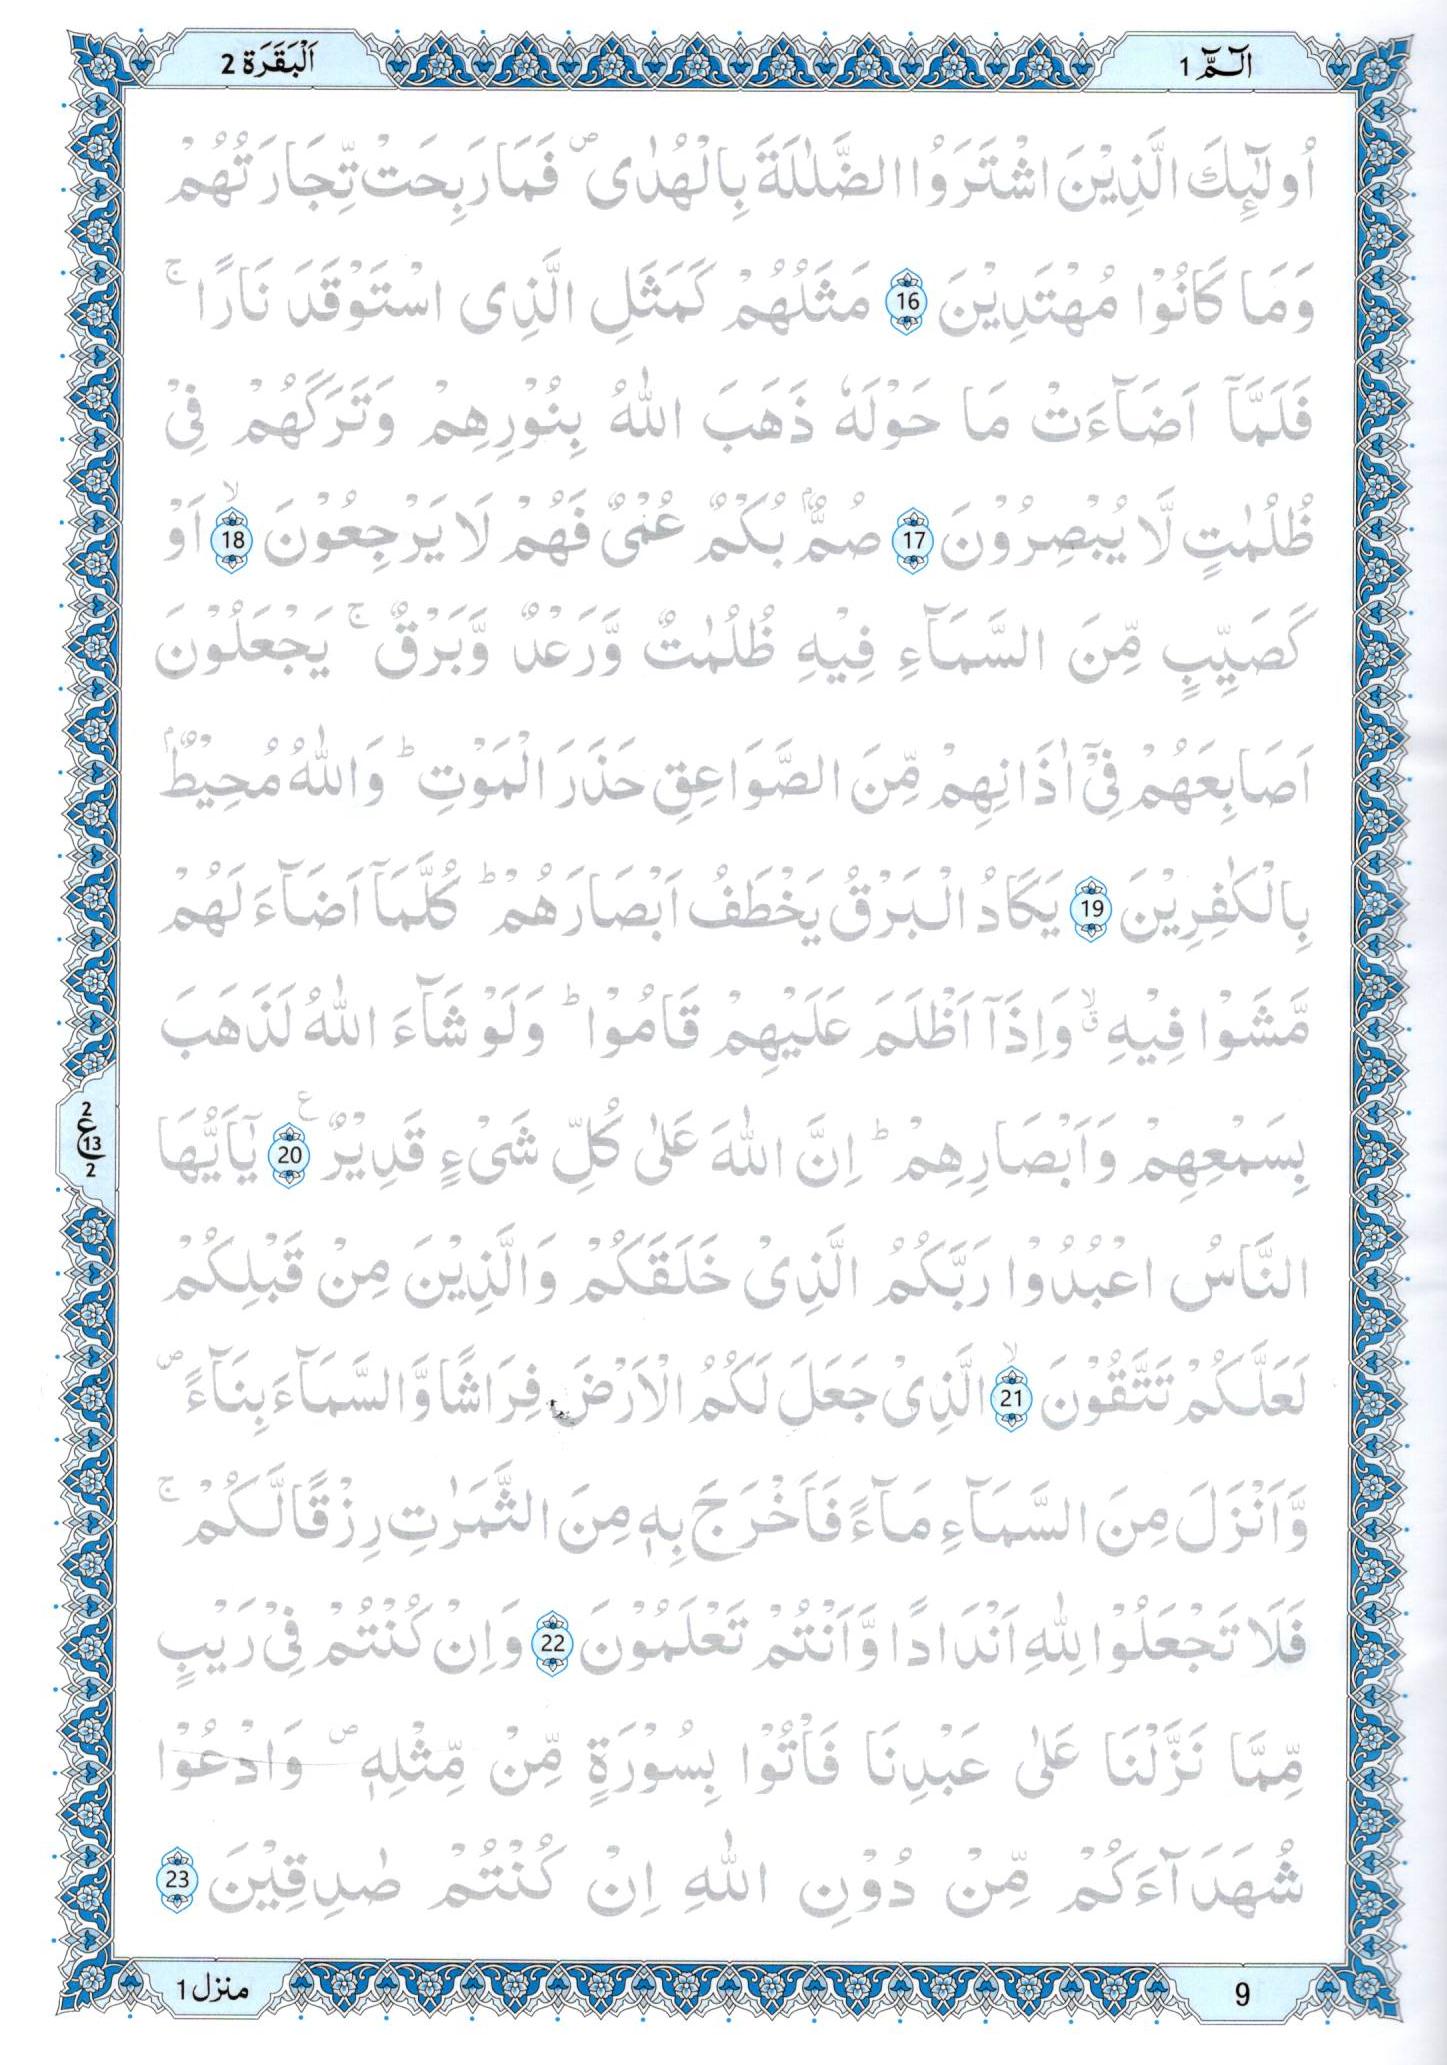 الٓمّٓ 1
اَلْبَقَرَة 2
اُولٰٓئِكَ الَّذِیْنَ اشْتَرَوُا الضَّلٰلَةَ بِالْهُدٰی ۪ فَمَا رَبِحَتْ تِّجَارَتُهُمْ
وَمَا كَانُوْا مُهْتَدِیْنَ 16 مَثَلُهُمْ كَمَثَلِ الَّذِی اسْتَوْقَدَ نَارًا ۚ
فَلَمَّاۤ اَضَآءَتْ مَا حَوْلَهٗ ذَهَبَ اللّٰهُ بِنُوْرِهِمْ وَتَرَكَهُمْ فِیْ
ظُلُمٰتٍ لَّا یُبْصِرُوْنَ 17 صُمٌّۢ بُكْمٌ عُمْیٌ فَهُمْ لَا یَرْجِعُوْنَ ۙ 18 اَوْ
كَصَیِّبٍ مِّنَ السَّمَآءِ فِیْهِ ظُلُمٰتٌ وَّرَعْدٌ وَّبَرْقٌ ۚ یَجْعَلُوْنَ
اَصَابِعَهُمْ فِیْۤ اٰذَانِهِمْ مِّنَ الصَّوَاعِقِ حَذَرَ الْمَوْتِ ؕ وَاللّٰهُ مُحِیْطٌۢ
بِالْكٰفِرِیْنَ 19 یَكَادُ الْبَرْقُ یَخْطَفُ اَبْصَارَهُمْ ؕ كُلَّمَاۤ اَضَآءَ لَهُمْ
مَّشَوْا فِیْهِ ۙۗ وَاِذَاۤ اَظْلَمَ عَلَیْهِمْ قَامُوْا ؕ وَلَوْ شَآءَ اللّٰهُ لَذَهَبَ
بِسَمْعِهِمْ وَاَبْصَارِهِمْ ؕ اِنَّ اللّٰهَ عَلٰی كُلِّ شَیْءٍ قَدِیْرٌ ع 20 یٰۤاَیُّهَا
2 ع 13 2
النَّاسُ اعْبُدُوْا رَبَّكُمُ الَّذِیْ خَلَقَكُمْ وَالَّذِیْنَ مِنْ قَبْلِكُمْ
لَعَلَّكُمْ تَتَّقُوْنَ ۙ 21 الَّذِیْ جَعَلَ لَكُمُ الْاَرْضَ فِرَاشًا وَّالسَّمَآءَ بِنَآءً ۪
وَّاَنْزَلَ مِنَ السَّمَآءِ مَآءً فَاَخْرَجَ بِهٖ مِنَ الثَّمَرٰتِ رِزْقًا لَّكُمْ ۚ
فَلَا تَجْعَلُوْا لِلّٰهِ اَنْدَادًا وَّاَنْتُمْ تَعْلَمُوْنَ 22 وَاِنْ كُنْتُمْ فِیْ رَیْبٍ
مِّمَّا نَزَّلْنَا عَلٰی عَبْدِنَا فَاْتُوْا بِسُوْرَةٍ مِّنْ مِّثْلِهٖ ۪ وَادْعُوْا
شُهَدَآءَكُمْ مِّنْ دُوْنِ اللّٰهِ اِنْ كُنْتُمْ صٰدِقِیْنَ 23
9
منزل 1